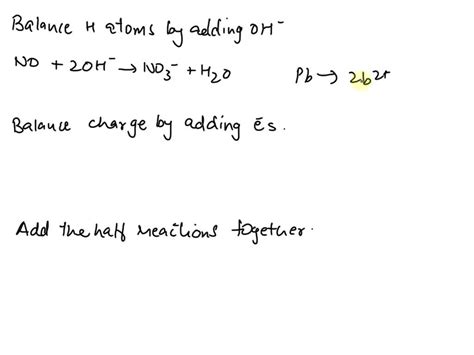 Balance H atoms by adding OH⁻
NO + 2OH⁻ → NO₃⁻ + H₂O Pb → 2b²⁺
Balance charge by adding ēs.
Add the half reactions together.